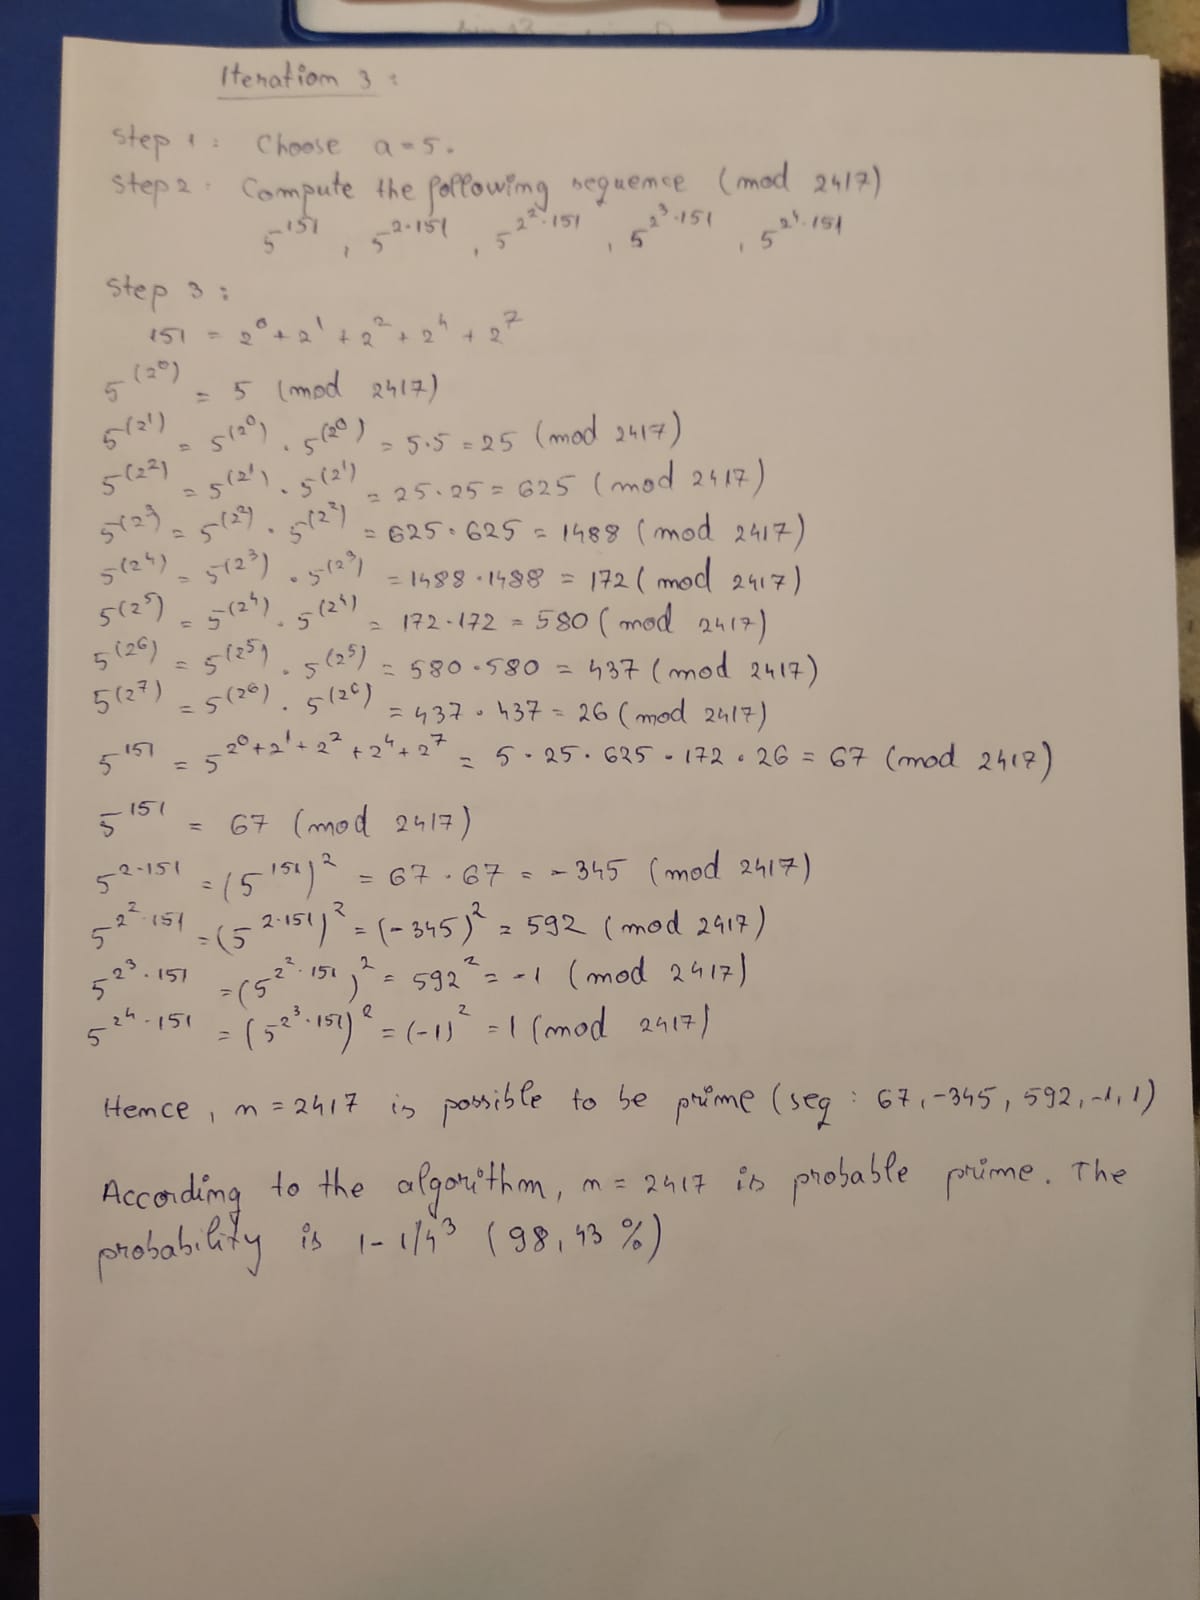 Iteration 3:
Step 1: Choose a = 5.
Step 2: Compute the following sequence (mod 2417)
5^151, 5^2·151, 5^2^2·151, 5^2^3·151, 5^2^4·151
Step 3:
151 = 2^0 + 2^1 + 2^2 + 2^4 + 2^7
5^(2^0) = 5 (mod 2417)
5^(2^1) = 5^(2^0) · 5^(2^0) = 5·5 = 25 (mod 2417)
5^(2^2) = 5^(2^1) · 5^(2^1) = 25·25 = 625 (mod 2417)
5^(2^3) = 5^(2^2) · 5^(2^2) = 625·625 = 1488 (mod 2417)
5^(2^4) = 5^(2^3) · 5^(2^3) = 1488·1488 = 172 (mod 2417)
5^(2^5) = 5^(2^4) · 5^(2^4) = 172·172 = 580 (mod 2417)
5^(2^6) = 5^(2^5) · 5^(2^5) = 580·580 = 437 (mod 2417)
5^(2^7) = 5^(2^6) · 5^(2^6) = 437·437 = 26 (mod 2417)
5^151 = 5^2^0+2^1+2^2+2^4+2^7 = 5·25·625·172·26 = 67 (mod 2417)
5^151 = 67 (mod 2417)
5^2·151 = (5^151)^2 = 67·67 = -345 (mod 2417)
5^2^2·151 = (5^2·151)^2 = (-345)^2 = 592 (mod 2417)
5^2^3·151 = (5^2^2·151)^2 = 592^2 = -1 (mod 2417)
5^2^4·151 = (5^2^3·151)^2 = (-1)^2 = 1 (mod 2417)
Hence, n = 2417 is possible to be prime (seq: 67, -345, 592, -1, 1)
According to the algorithm, n = 2417 is probable prime. The
probability is 1 - 1/4^3 (98,43 %)